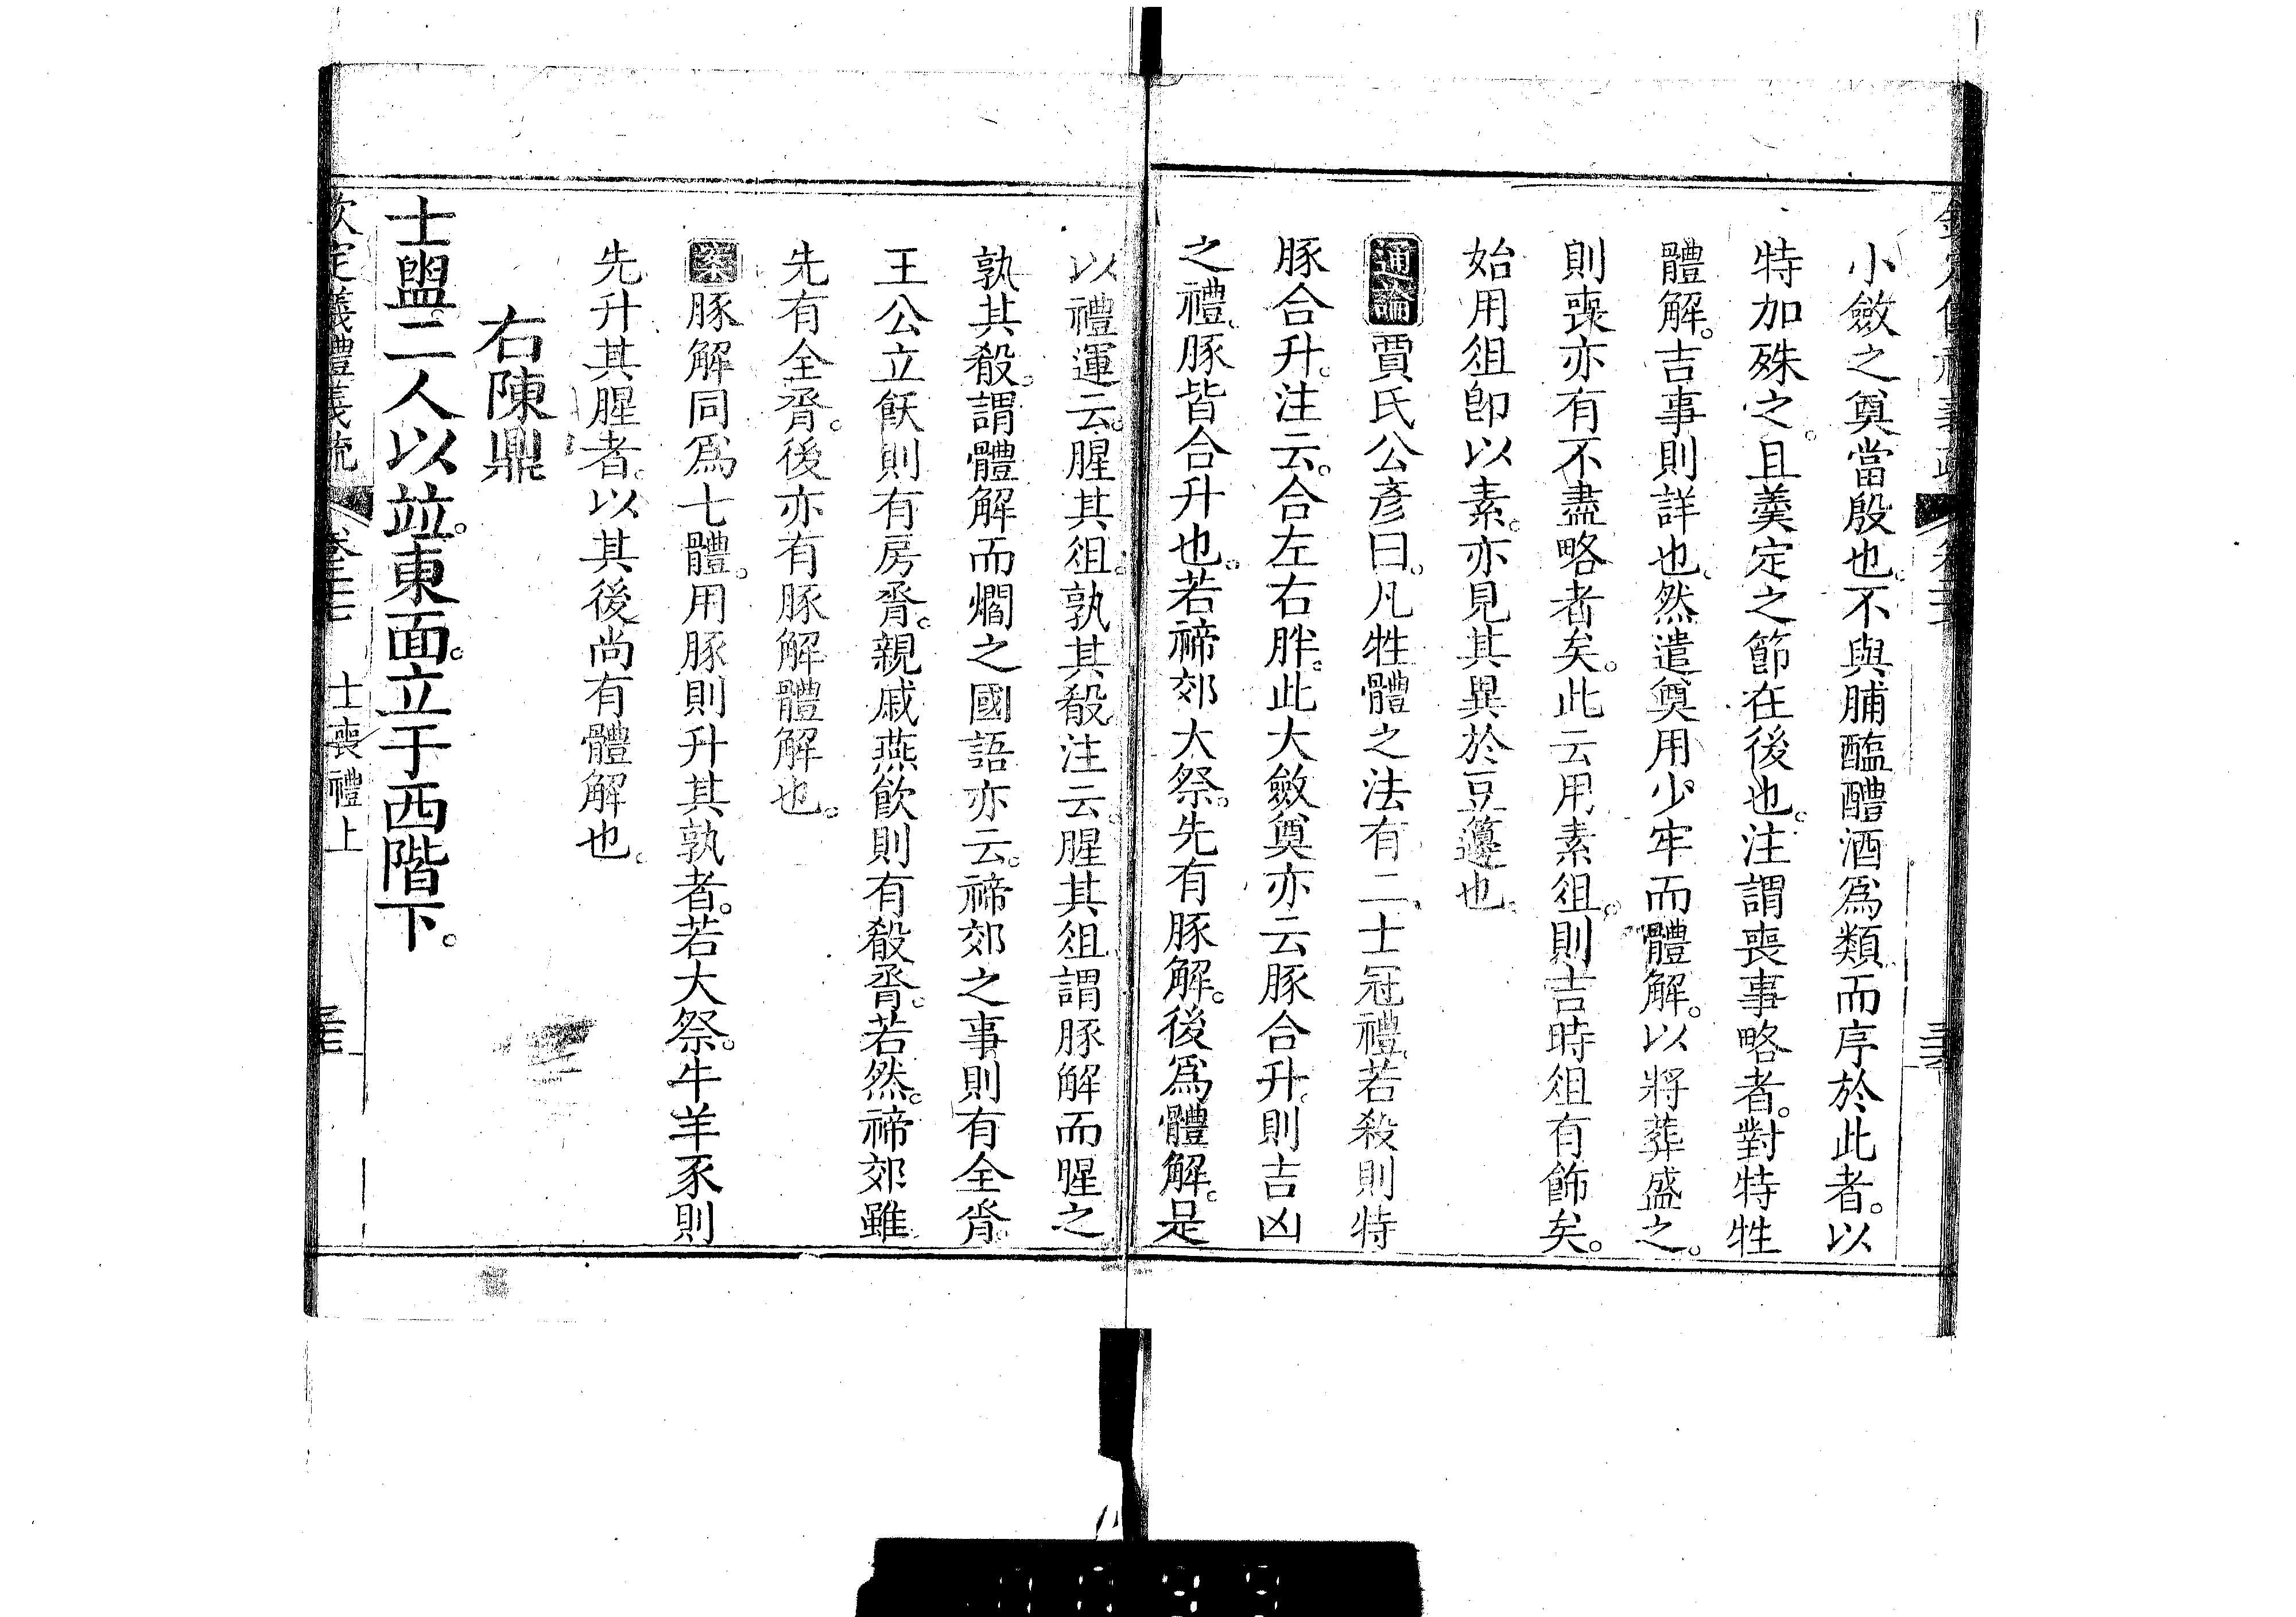 小斂之奠當殷也。不與脯醢醴酒爲類。而序於此者。以
特加殊之。且羹定之節在後也。注謂喪事略者。對特牲
體解。吉事則詳也。然遣奠用少牢而體解。以將葬盛之。
則喪亦有不盡略者矣。此云用素俎。則吉時俎有飾矣。
始用俎卽以素。亦見其異於豆籩也。
通論賈氏公彥曰。凡牲體之法有二。士冠禮。若殺則特
豚合升。注云。合左右胖。此大斂奠亦云豚合升。則吉凶
之禮。豚皆合升也。若禘郊大祭。先有豚解。後爲體解。是
以禮運云。腥其俎。孰其殽。注云。腥其俎。謂豚解而腥之。
孰其殽。謂體解而爓之。國語亦云。禘郊之事則有全脀。
王公立飫則有房脀。親戚燕飮則有殽脀。若然。禘郊雖
先有全脀。後亦有豚解體解也。
案豚解同爲七體。用豚則升其孰者。若大祭。牛羊豕則
先升其腥者。以其後尚有體解也。
右陳鼎
士盥。二人以竝。東面。立于西階下。
欽定儀禮義疏 士喪禮上